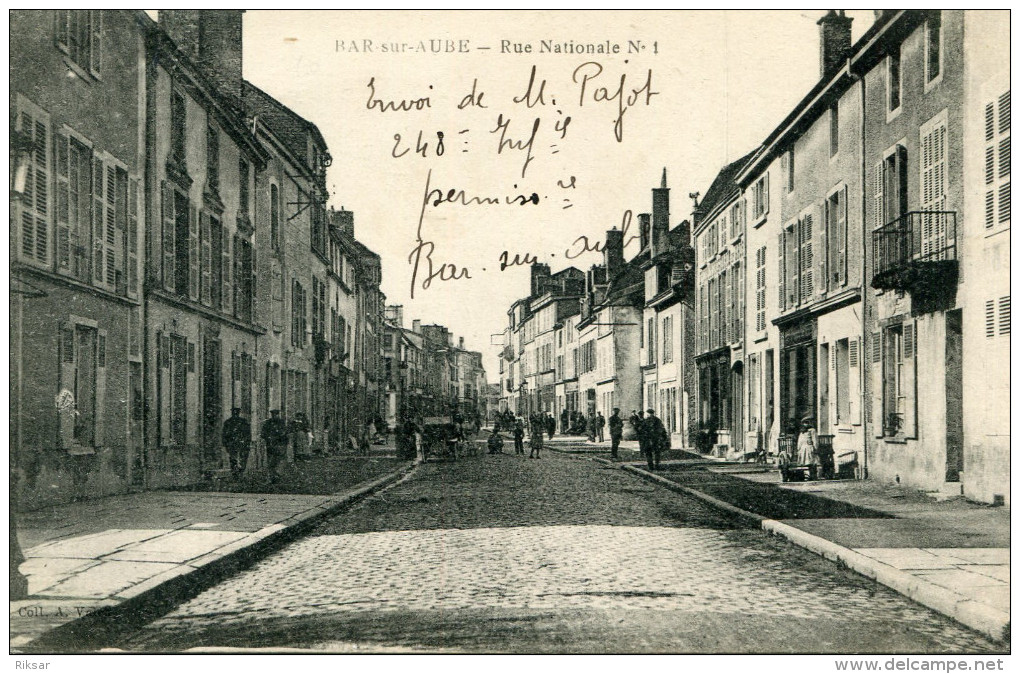 BAR-sur-AUBE — Rue Nationale Nº 1
Envoi de M. Pajot
248 = Inf is
permiss. re =
Bar. sur. aube
Coll. A.
Riksar
www.delcampe.net